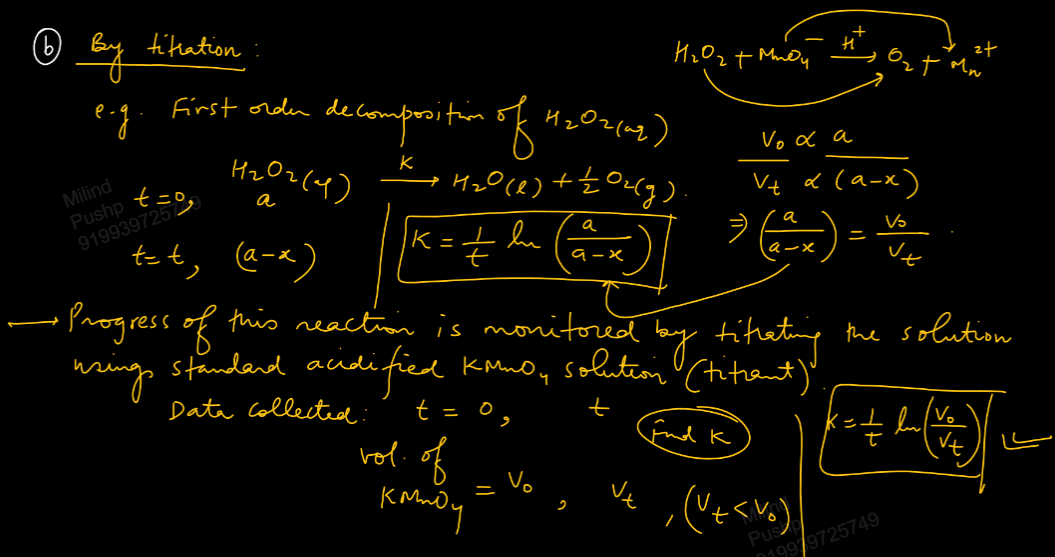 (b) By titration :
H2O2 + MnO4⁻ —H⁺→ O2 + Mn²⁺
e.g. First order decomposition of H2O2(aq)
V₀ ∝ a
Vt ∝ (a-x)
H2O2(aq) —K→ H2O(l) + ½ O2(g).
t=0, a
⇒ (a/(a-x)) = V₀/Vt
K = 1/t ln (a/(a-x))
t=t, (a-x)
Milind
Pushp
919939725749
→ Progress of this reaction is monitored by titrating the solution
using standard acidified KMnO4 solution (titrant).
Data collected: t = 0, t
Find K
K = 1/t ln (V₀/Vt)
vol. of
KMnO4 = V₀, Vt, (Vt < V₀)
Milind
Pushp
919939725749